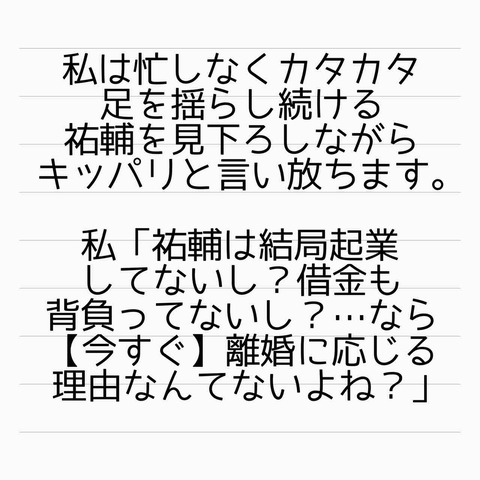 私は忙しなくカタカタ
足を揺らし続ける
祐輔を見下ろしながら
キッパリと言い放ちます。
私「祐輔は結局起業
してないし？借金も
背負ってないし？…なら
【今すぐ】離婚に応じる
理由なんてないよね？」